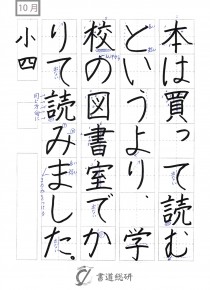 10月
本は買って読む
というより、学
校の図書室でか
りて読みました。
小四
書道総研